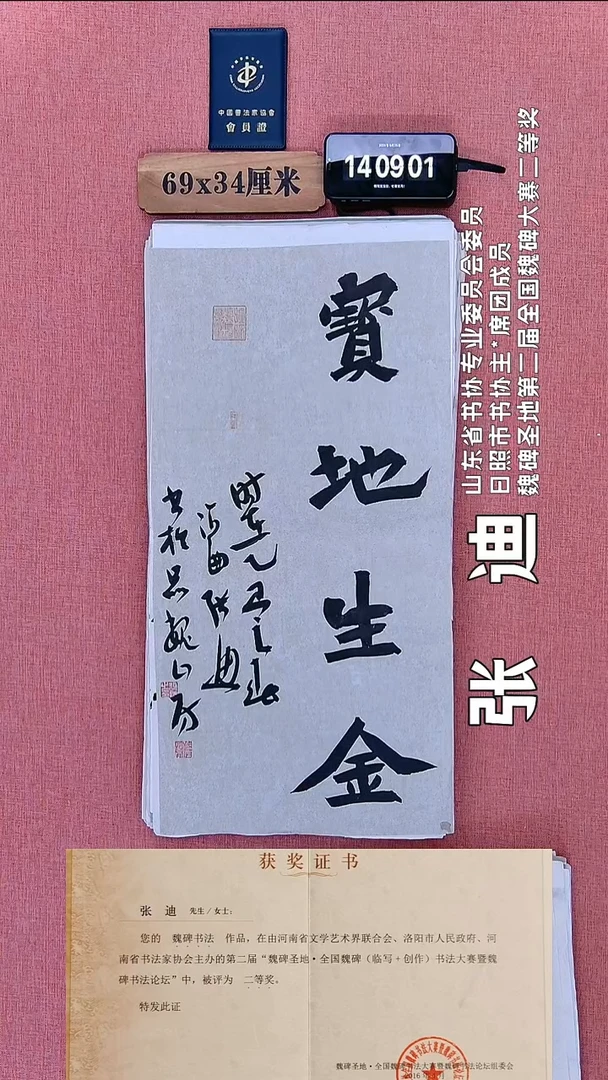 中國書法家協會
會員證
69x34厘米
14 09 01
寶地生金
时在乙巳之春
张迪
书於思魏山房
山东省书协专业委员会委员
日照市书协主*席团成员
魏碑圣地第二届全国魏碑大赛二等奖
张 迪
获奖证书
张 迪 先生/女士：
您的 魏碑书法 作品，在由河南省文学艺术界联合会、洛阳市人民政府、河
南省书法家协会主办的第二届“魏碑圣地·全国魏碑（临写+创作）书法大赛暨魏
碑书法论坛”中，被评为 二等奖。
特发此证
魏碑圣地·全国魏碑书法大赛暨魏碑书法论坛组委会